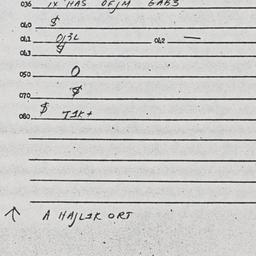 036 IX HAS OFJM GABS
040 $
041 OJ3L 042 —
043 $
050 O
070 $
080 $ TJK+
↑ A HAJLJK ORT